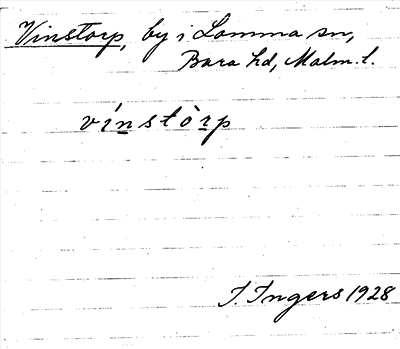 Vinstorp, by i Lomma sn,
Bara hd, Malm. l.
vínstòrp
I. Ingers 1928